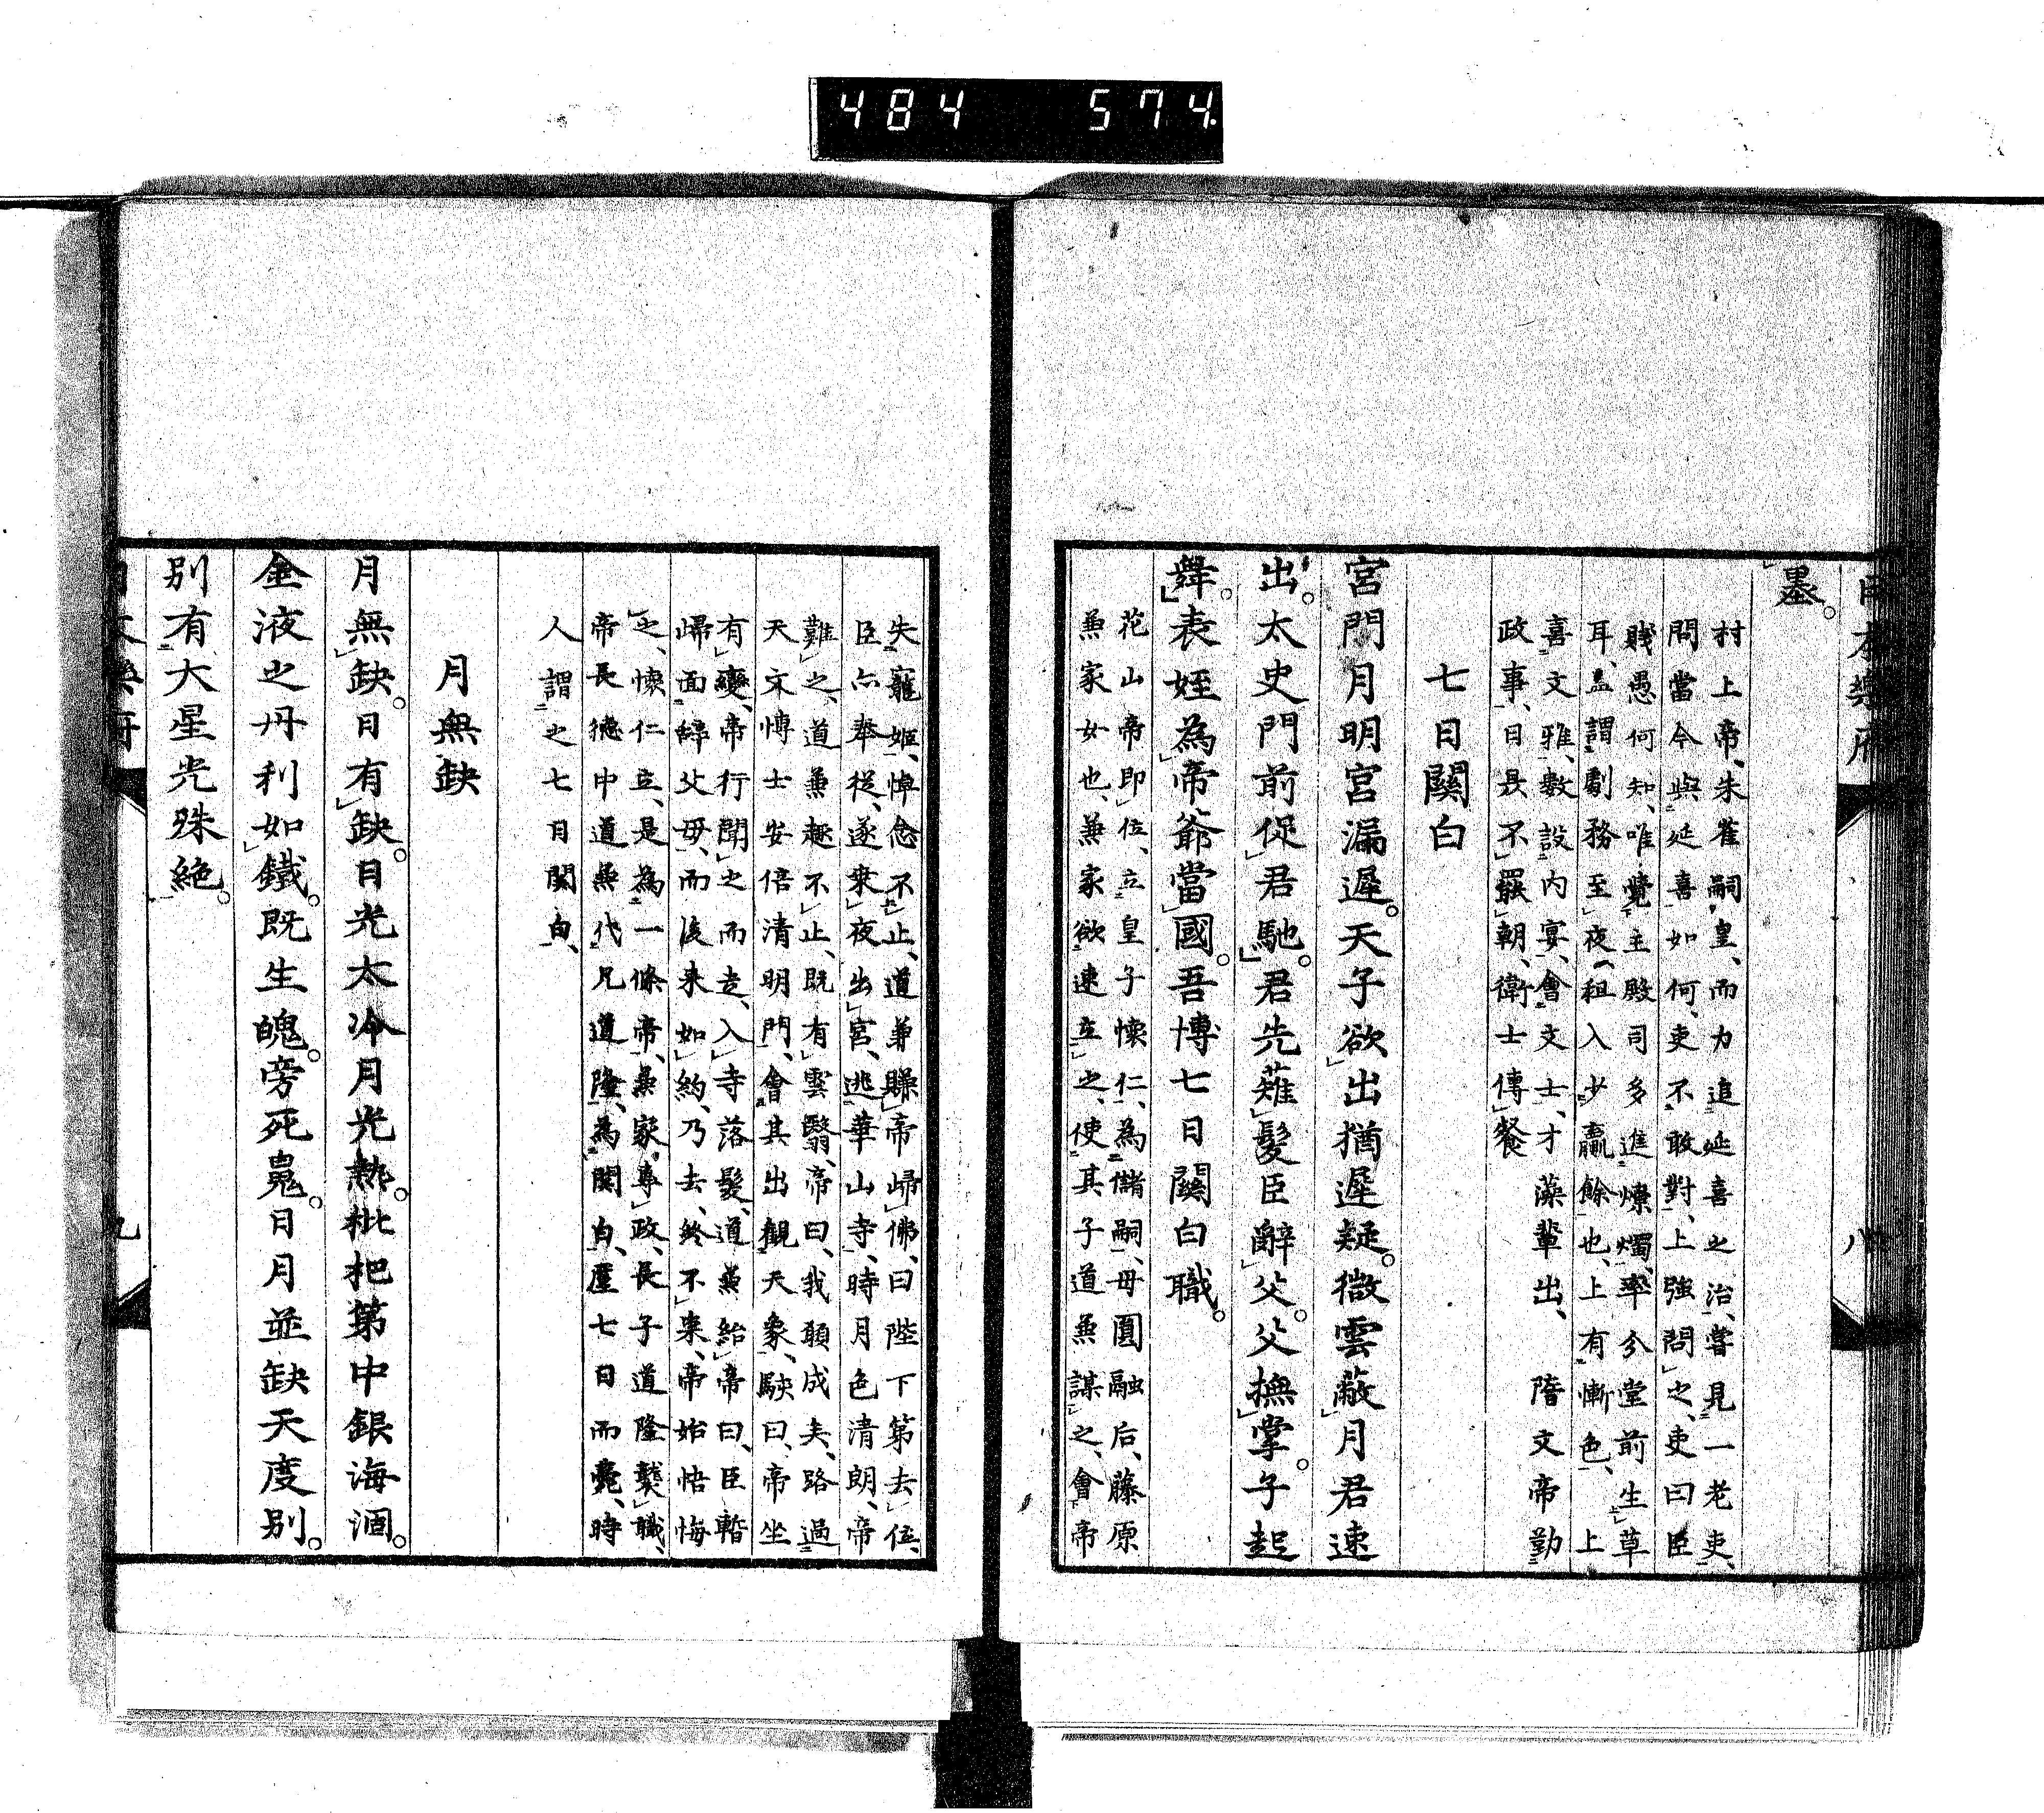 484 574.
日本樂府
八
墨。
村上帝、朱雀嗣皇、而力追延喜之治、嘗見一老吏、
問當今與延喜如何、吏不敢對、上強問之、吏曰臣
賤愚何知、唯覺主殿司多進燎燭、率分堂前生草
耳、蓋謂劇務至夜、租入少贏餘也、上有慚色、上
喜文雅、數設内宴、會文士、才藻輩出、隋文帝勤
政事、日昃不罷朝、衛士傳餐
七日關白
宮門月明宮漏遲。天子欲出猶遲疑。微雲蔽月君速
出。太史門前促君馳。君先薙髮臣辭父。父撫掌。子起
舞。表姪為帝爺當國。吾博七日關白職。
花山帝即位、立皇子懷仁、為儲嗣、母圓融后、藤原
兼家女也、兼家欲速立之、使其子道兼謀之、會帝
失寵姬、悼念不止、道兼賺帝歸佛、曰陛下第去位、
臣亦奉從、遂乘夜出宮、逃華山寺、時月色清朗、帝
難之、道兼趣不止、既有雲翳、帝曰、我願成矣、路過
天文博士安倍清明門、會其出觀天象、駭曰、帝坐
有變、帝行聞之而走、入寺落髮、道兼紿帝曰、臣暫
歸面辭父母、而後来如約、乃去、終不来、帝始悟悔
之、懷仁立、是為一條帝、兼家專政、長子道隆襲職、
帝長德中道兼代兄道隆、為関白、廑七日而薨、時
人謂之七日関白、
月無缺
月無缺。日有缺。日光太冷月光熱。枇杷第中銀海涸。
金液之丹利如鐵。既生魄。旁死鬼。日月並缺天度別。
別有大星光殊絶。
日本樂府
九